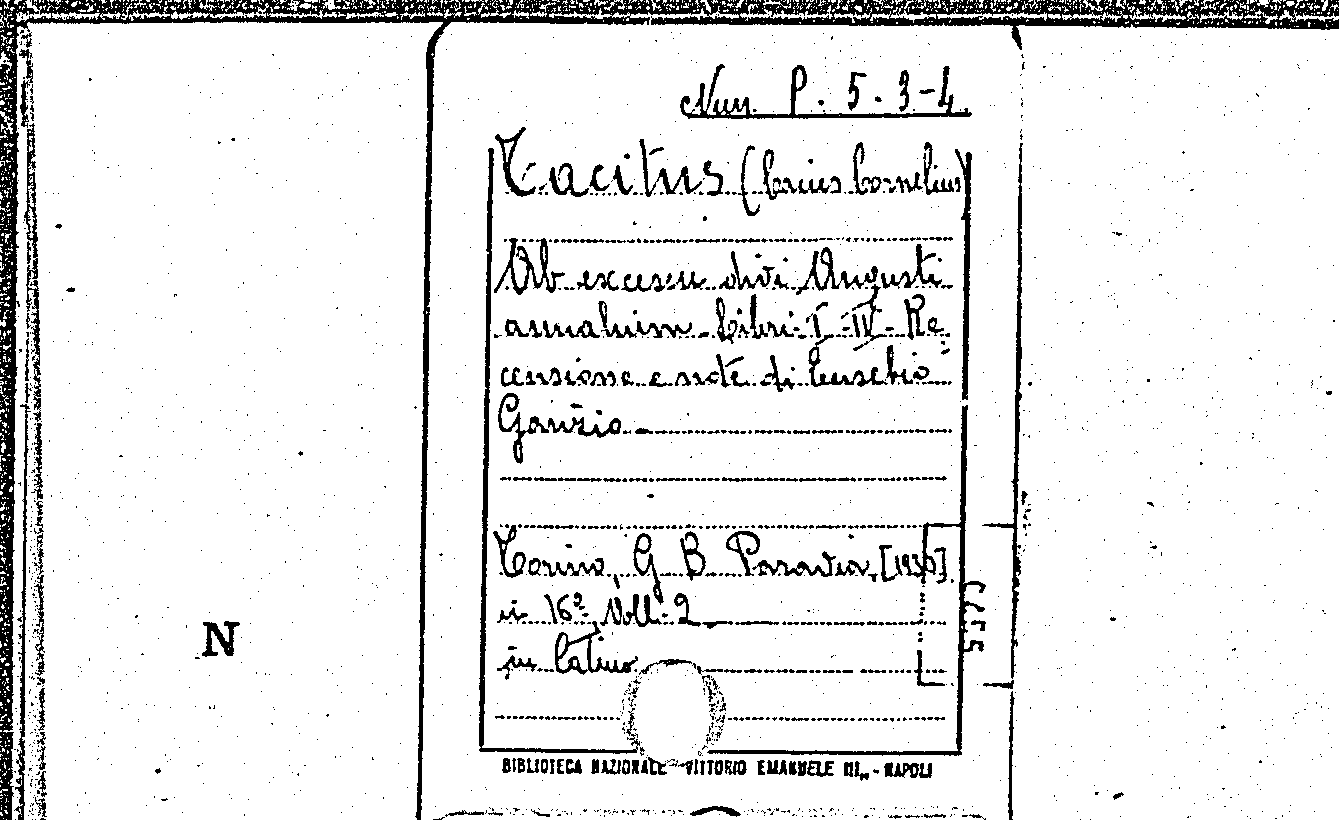 Nun. P. 5. 3-4.
Tacitus (Caius Cornelius)
Ab excessu divi Augusti
annalium Libri I-IV- Re
censione e note di Eusebio
Garizio.
Torino, G B Paravia, [1930]
in 16º. Voll. 2.
in latino
N
BIBLIOTECA NAZIONALE VITTORIO EMANUELE III,, - NAPOLI